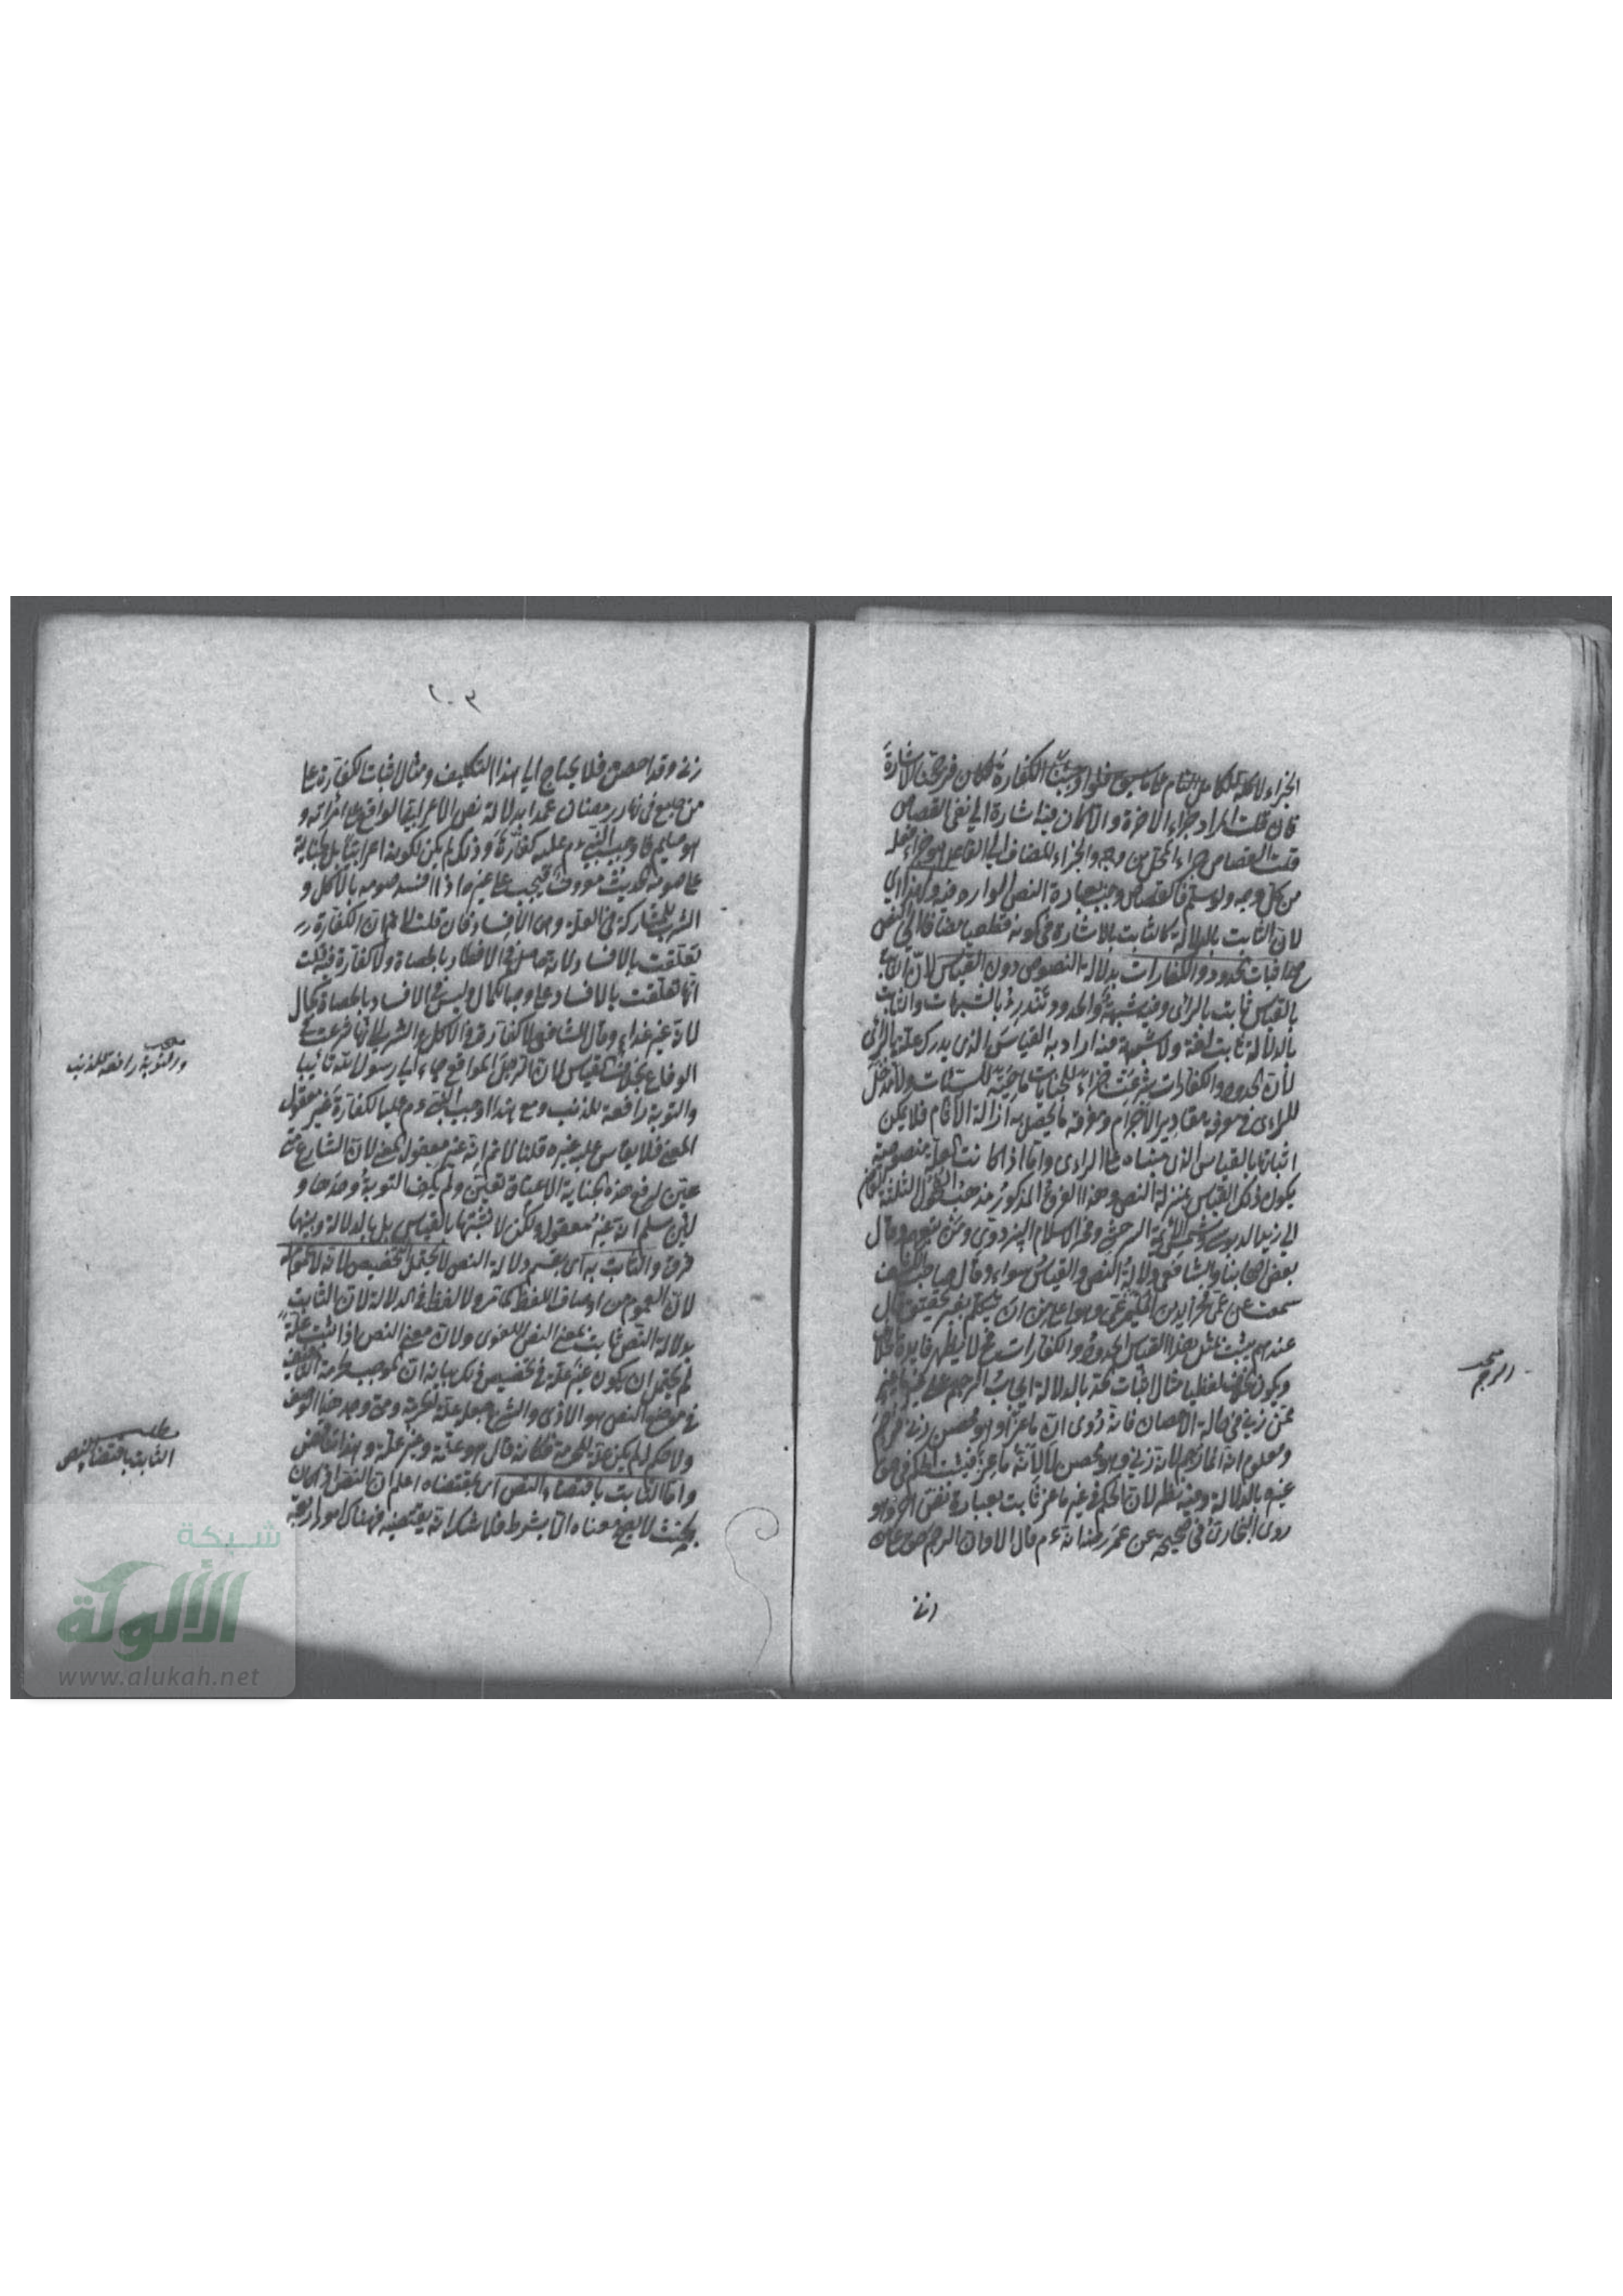 الجزاء لانه الكامل التام على ما سيجئ فلو اوجبنا الكفارة لكان فرجحنا الاشارة
فان قلت المراد جزاء الاخرة والا لكان فيه اشارة الى نفى القصاص
قلت القصاص جزاء المحل من وجه والجزاء المضاف الى الفاعل هو جزاء فعله
من كل وجه ولو سلم فالقصاص وجب بعبارة النص الوارد فيه ولهذا اى
لان الثابت بالدلالة كالثابت بالاشارة فى كونه قطعيا مضافا الى النص
صح اثبات الحدود والكفارات بدلالة النصوص دون القياس لان الثابت
بالقياس ثابت بالرأى وفيه شبهة والحدود تندرئ بالشبهات والثابت
بالدلالة ثابت لغة ولا شبهة فيه اراد به القياس الذى يدرك علته بالرأى
لأن الحدود والكفارات شرعت جزاء للجنايات ماحية للسيئات ولا مدخل
للراى فى معرفة مقادير الاجرام ومعرفة ما يحصل به ازالة الآثام فلا يمكن
اثباتها بالقياس الذى مبناه على الراى واما اذا كانت العلة منصوصة
يكون ذلك القياس بمنزلة النص وهذا الفرق المذكور مذهب الفحول الثلثة القاضى
ابى زيد الدبوسى وشمس الائمة السرخسى وفخر الاسلام البزدوى ومن تبعهم وقال
بعض اصحابنا والشافعى دلالة النص والقياس سواء وقال صاحب الكشف
سمعت عن عمى فخر الدين وهو اعلى من ان يتكلم بغير تحقيق قال
عندهم يثبت بمثل هذا القياس الحدود والكفارات فح لا يظهر فايدة الخلاف
ويكون الخلاف لفظيا مثال اثبات الحد بالدلالة ايجاب الرجم على غير ماعز
ممن زنى فى حالة الاحصان فانه روى ان ماعزا وهو محصن زنى فرجم
ومعلوم انه انما رجم لانه زنى وهو محصن لا لانه ماعز فيثبت الحكم فى حق
غيره بالدلالة وفيه نظر لان الحكم فى غير ماعز ثابت بعبارة نص اخر وهو
روى البخارى فى صحيحه عن عمر رضه انه عم قال الا وان الرجم حق على من
زنى
الرجم
١٠٣
زنى وقد احصن فلا يحتاج الى هذا التكليف ومثال اثبات الكفارة على
من جامع فى نهار رمضان عمدا بدلالة نص الاعرابى الواقع على امرأته و
هو صايم فاوجب النبى عم عليه كفارة وذلك لم يكن لكونه اعرابيا بل لجناية
على صومه والحديث معروف فيجب على غيره اذا افسد صومه بالاكل و
الشرب للمشاركة فى العلة وهى الافساد فان قلت لا نم ان الكفارة
تعلقت بالافساد لانه حاصل فى الافطار بالحصاة ولا كفارة فيه قلت
انها تعلقت بالافساد على وجه الكمال وليس فى الافساد بالحصاة كمال
لانه غير غذاء وقال الشافعى لا كفارة فى الاكل والشرب لانها شرعت فى
الوقاع بخلاف القياس لان الرجل المواقع جاء الى رسول الله تائبا
والتوبة رافعة للذنب ومع هذا اوجب النبى عم عليه الكفارة غير معقول
المعنى فلا يقاس عليه غيره قلنا لا نم انه غير معقول المعنى لان الشارع متى
عين لرفع هذه الجناية الاعتاق تعين ولم يكف التوبة وحدها و
لئن سلم انه غير معقول ولكن لا نثبتها بالقياس بل بالدلالة وبينهما
فرق والثابت به اى بقسم دلالة النص لا يحتمل التخصيص لانه لا عموم له
لان العموم من اوصاف اللفظ كما مر ولا لفظ فى الدلالة لان الثابت
بدلالة النص ثابت بمعنى النص اللغوى ولان معنى النص اذا ثبت علة
لم يحتمل ان يكون غير علة فى تخصيص ذلك بيانه ان الموجب لحرمة التأفيف
فى موضع النص هو الاذى والشرع جعله علة للحرمة ومتى وجد هذا الوصف
ولا حكم له لم يكن علة للحرمة فكانه قال هو علة وغير علة وهذا تناقض
واما الثابت باقتضاء النص اى بمقتضاه اعلم ان النص اذا كان
بحيث لا يصح معناه الا بشرط فلا شك انه يقتضيه فهناك امور اربعة
والتوبة رافعة للذنب
مطلب
الثابت باقتضاء النص
شبكة
الألوكة
www.alukah.net